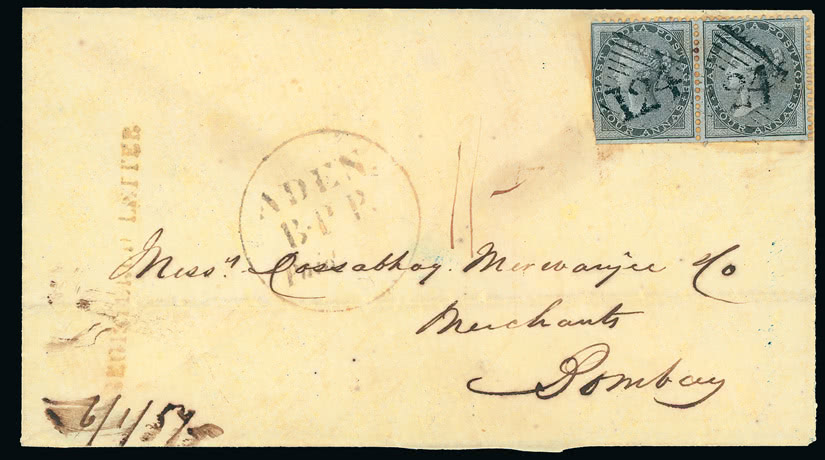 EAST INDIA POSTAGE
FOUR ANNAS
124
EAST INDIA POSTAGE
FOUR ANNAS
124
REGISTERED LETTER
ADEN.
B.P.P.
Mess.rs Cossabhoy Merwanjee &/Co
Merchants
Bombay
6/1/57